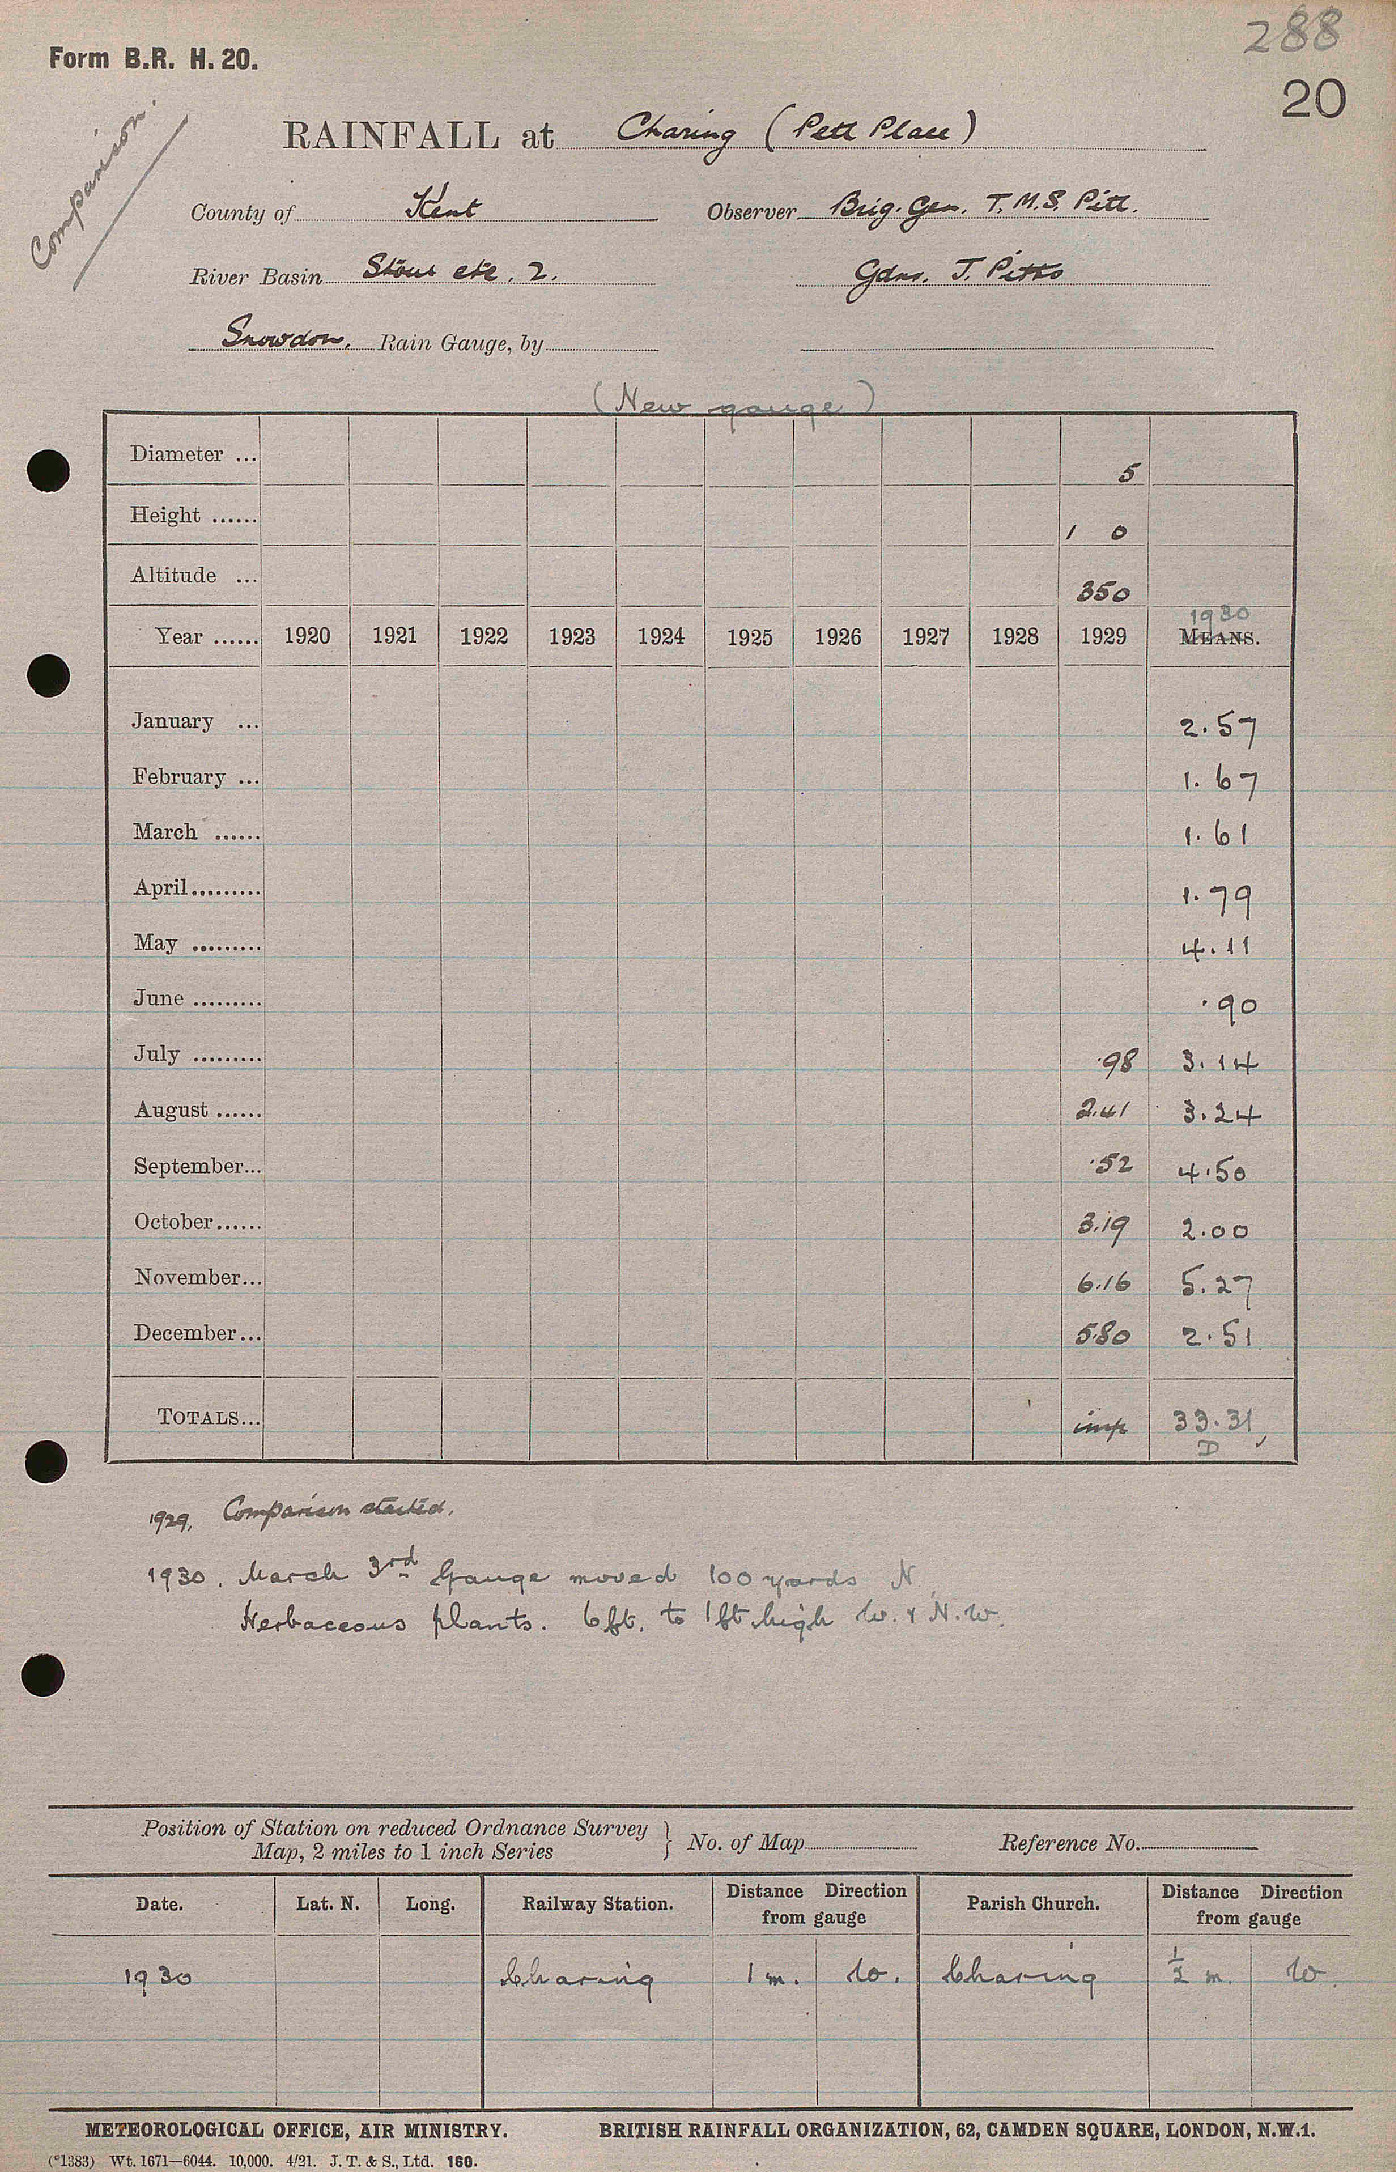 288
Form B.R. H. 20.
20
Comparison.
RAINFALL at Charing (Pett Place)
County of Kent Observer Brig. Gen. T. M. S. Pitt.
River Basin Stour etc. 2. Gdnr. J. Pitts
Snowdon. Rain Gauge, by
(New gauge)
Diameter ... 5
Height ...... 1 0
Altitude ... 350
1930
Year ...... 1920 1921 1922 1923 1924 1925 1926 1927 1928 1929 MEANS.
January ... 2.57
February ... 1.67
March ...... 1.61
April ......... 1.79
May ......... 4.11
June ......... .90
July ......... .98 3.14
August ...... 2.41 3.24
September... .52 4.50
October...... 3.19 2.00
November... 6.16 5.27
December... 5.80 2.51
TOTALS... imp 33.31
D
1929. Comparison started.
1930. March 3rd Gauge moved 100 yards N
Herbaceous plants. 6ft. to 1ft high W. & N.W.
Position of Station on reduced Ordnance Survey
Map, 2 miles to 1 inch Series } No. of Map Reference No.
Date. Lat. N. Long. Railway Station. Distance Direction from gauge Parish Church. Distance Direction from gauge
1930 Charing 1 m. W. Charing ½ m. W.
METEOROLOGICAL OFFICE, AIR MINISTRY. BRITISH RAINFALL ORGANIZATION, 62, CAMDEN SQUARE, LONDON, N.W.1.
(*1383) Wt. 1671—6044. 10,000. 4/21. J. T. & S., Ltd. 160.